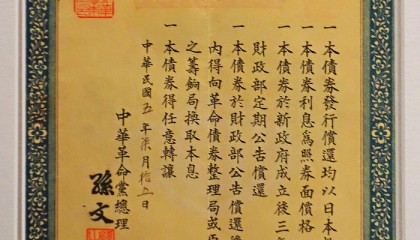 一本債券發行償還均以日本
一本債券利息為照券面價格
一本債券於新政府成立後三年
財政部定期公告償還
一本債券於財政部公告償還後
內得向革命債券整理局或
之籌餉局換取本息
一本債券得任意轉讓
中華民國五年柒月拾五日
中華革命黨總理
孫文